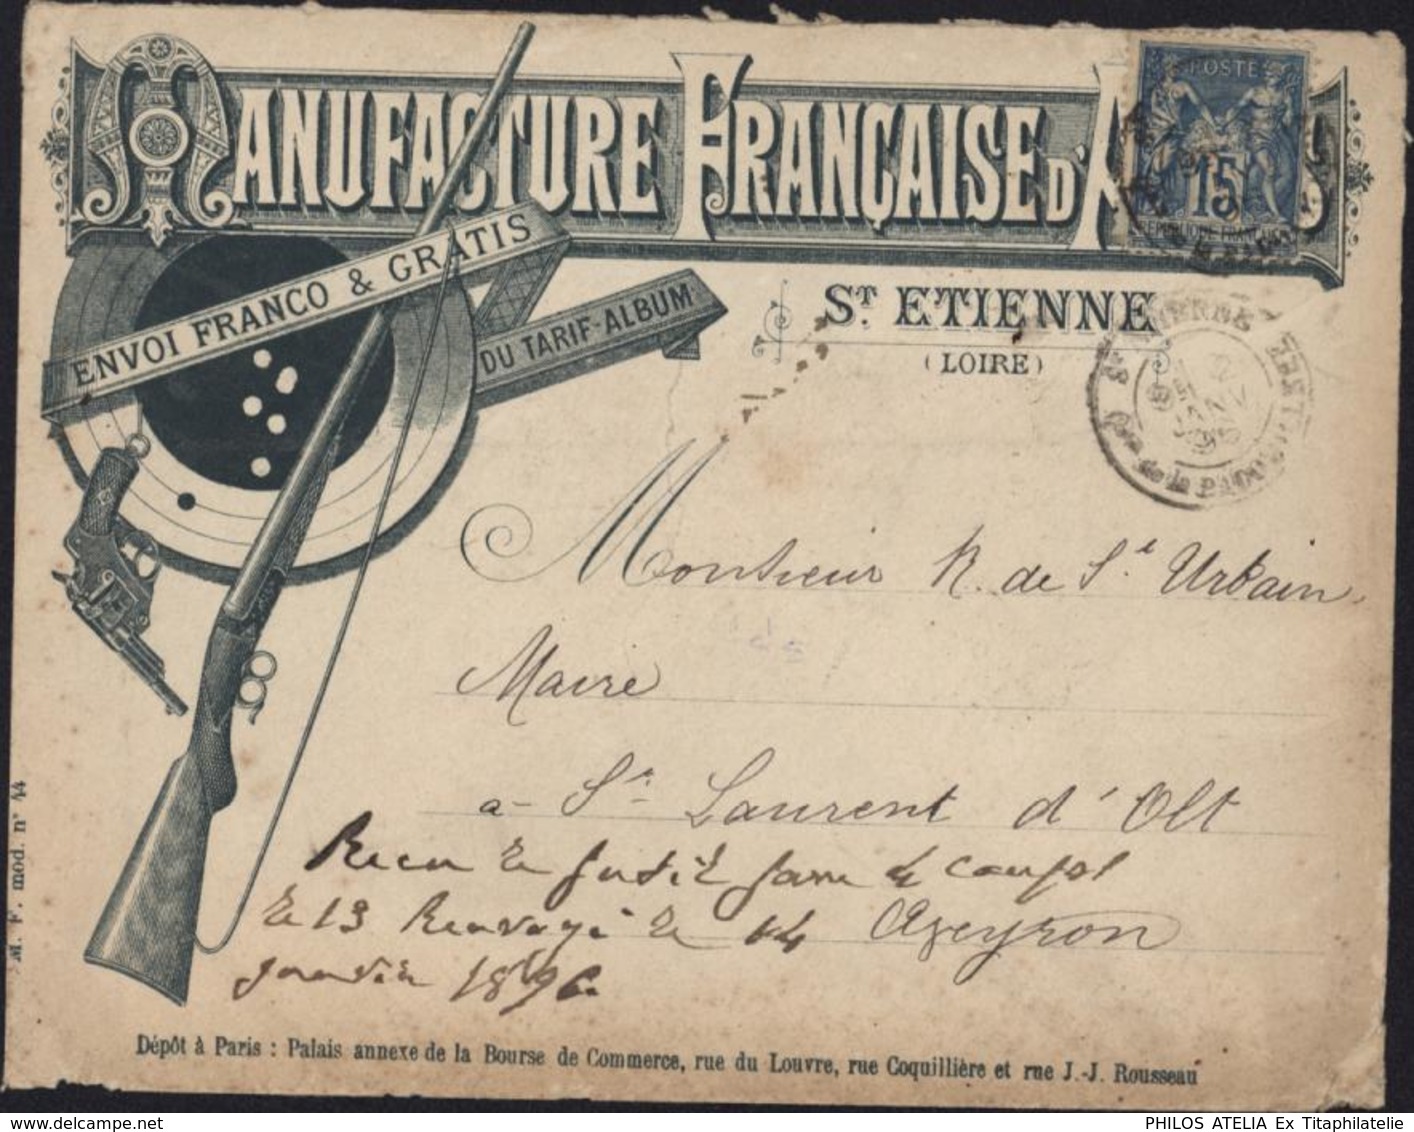 MANUFACTURE FRANÇAISE D'A
POSTES
15
REPUBLIQUE FRANÇAISE
ENVOI FRANCO & GRATIS
DU TARIF-ALBUM
ST ETIENNE
(LOIRE)
JANV
Monsieur R. de St Urbain
Maire
a St Laurent d'Olt
Recu le fusil sans le canfol
le 13 Renvoyé le 14 Aveyron
janvier 1896.
M. F. mod. n° 44
Dépôt à Paris : Palais annexe de la Bourse de Commerce, rue du Louvre, rue Coquillière et rue J.-J. Rousseau
delcampe.net
PHILOS ATELIA Ex Titaphilatelie